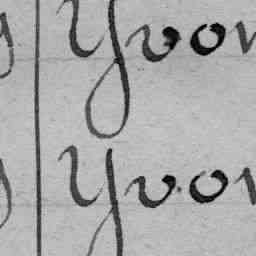 Yvon
Yvon